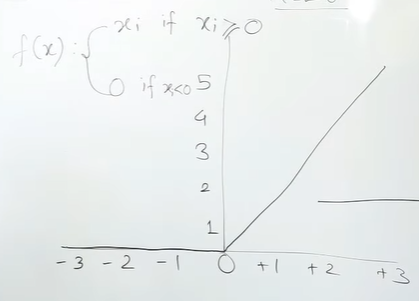 f(x): { xi if xi ≥ 0
0 if x<0
5
4
3
2
1
-3 -2 -1 0 +1 +2 +3